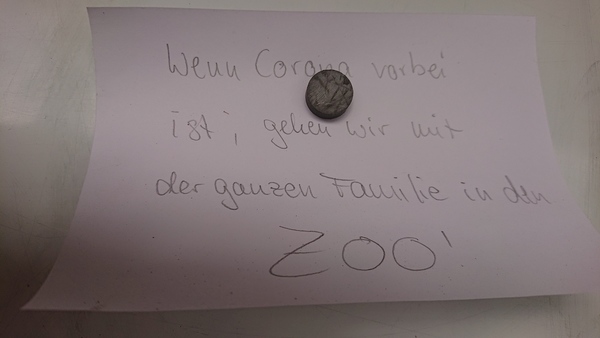 Wenn Corona vorbei
ist, gehen wir mit
der ganzen Familie in den
ZOO!